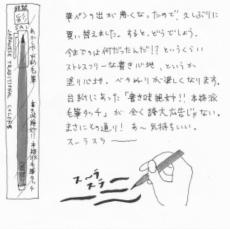 筆ペンの出が悪くなったので、久しぶりに
買い替えました。すると、どうでしょう。
今までのは何だったんだ!?というくらい
ストレスフリーな書き心地、というか
塗り心地。ベタ塗りが楽しくなります。
台紙にあった「書き味絶妙!!本格派
毛筆タッチ」が全く誇大広告じゃない。
まさにその通り!あ〜気持ちいい。
スーラスラ〜
スーラ
スラ
あかしや新毛筆
書き味絶妙!!本格派毛筆タッチ
JAPANESE TRADITIONAL